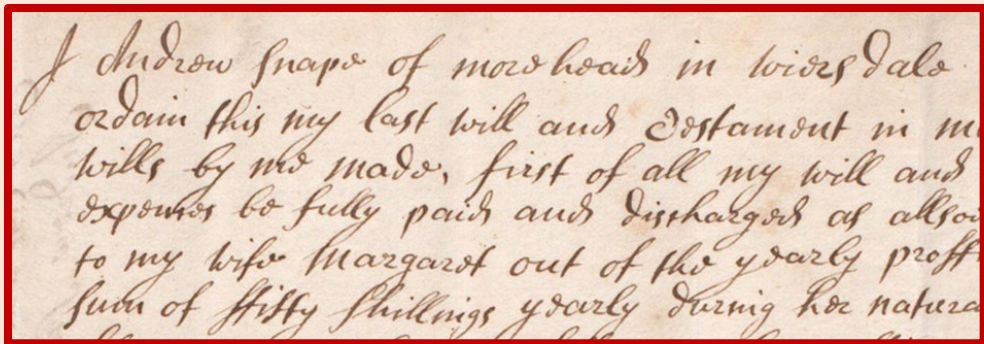 I Andrew Snape of morehead in wiersdale
ordain this my last will and Testament in
wills by me made, first of all my will and
expenses be fully paid and discharged as allso
to my wife Margaret out of the yearly
sum of ffifty shillings yearly during her